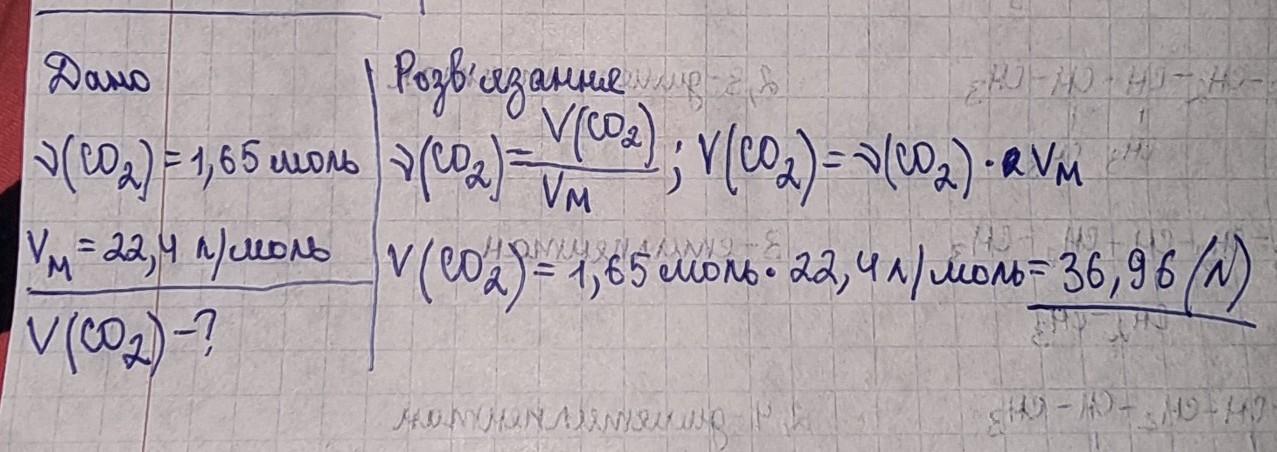 Дано
ν(CO₂) = 1,65 моль
Vм = 22,4 л/моль
V(CO₂) - ?
Розв'язання
ν(CO₂) = V(CO₂)/Vм ; V(CO₂) = ν(CO₂) · Vм
V(CO₂) = 1,65 моль · 22,4 л/моль = 36,96 (л)